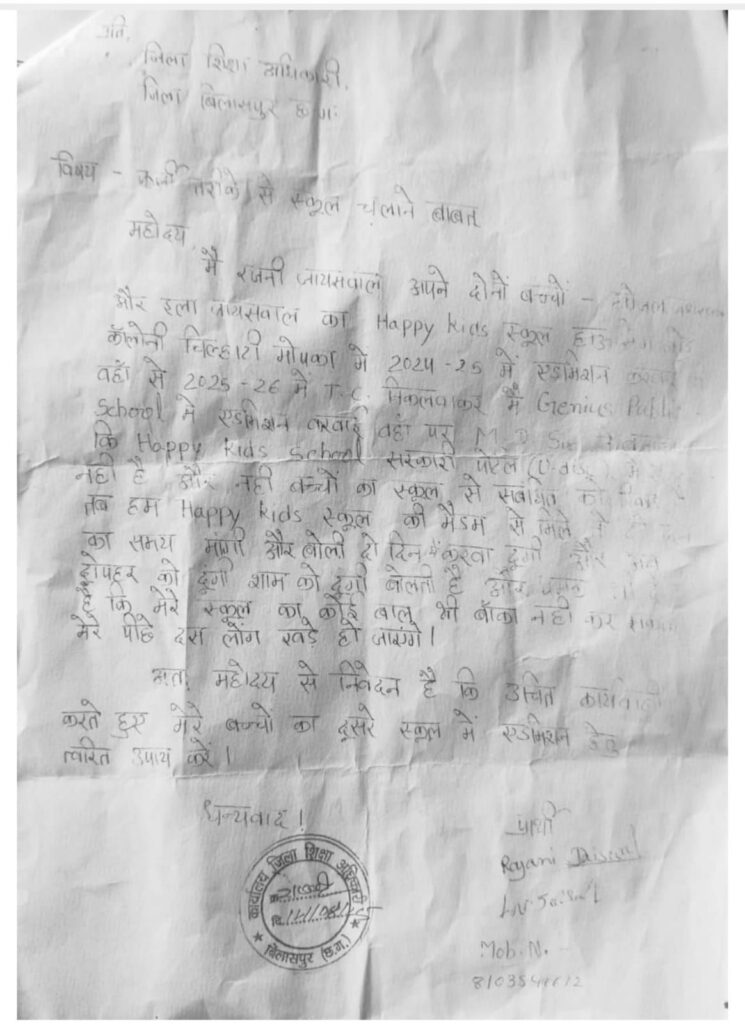 प्रति,
जिला शिक्षा अधिकारी,
जिला बिलासपुर छ.ग.
विषय - फर्जी तरीके से स्कूल चलाने बाबत्
महोदय,
मैं रजनी जायसवाल अपने दोनों बच्चों -
और इला जायसवाल का Happy Kids स्कूल हाऊसिंग बोर्ड
कॉलोनी चिल्हाटी मोपका मे 2024-25 में एडमिशन करवाई
वहाँ से 2025-26 में T.C. निकलवाकर मैं Genius Public
School में एडमिशन करवाई वहां पर M.D. Sir
कि Happy Kids School सरकारी पोर्टल में
नही है और नही बच्चों का स्कूल से संबंधित कोई
तब हम Happy Kids स्कूल की मैडम से मिले
का समय मांगी और बोली दो दिन में करवा दूंगी और
दोपहर को दूंगी शाम को दूंगी बोलती है और
है कि मेरे स्कूल का कोई बाल भी बाँका नही कर सकता
मेरे पीछे दस लोग खड़े हो जाएंगे।
अतः महोदय से निवेदन है कि उचित कार्यवाही
करते हुए मेरे बच्चों का दूसरे स्कूल में एडमिशन हेतु
त्वरित उपाय करें।
धन्यवाद!
प्रार्थी
Rajani Jaiswal
कार्यालय जिला शिक्षा अधिकारी
बिलासपुर (छ.ग.)
Mob. N. -